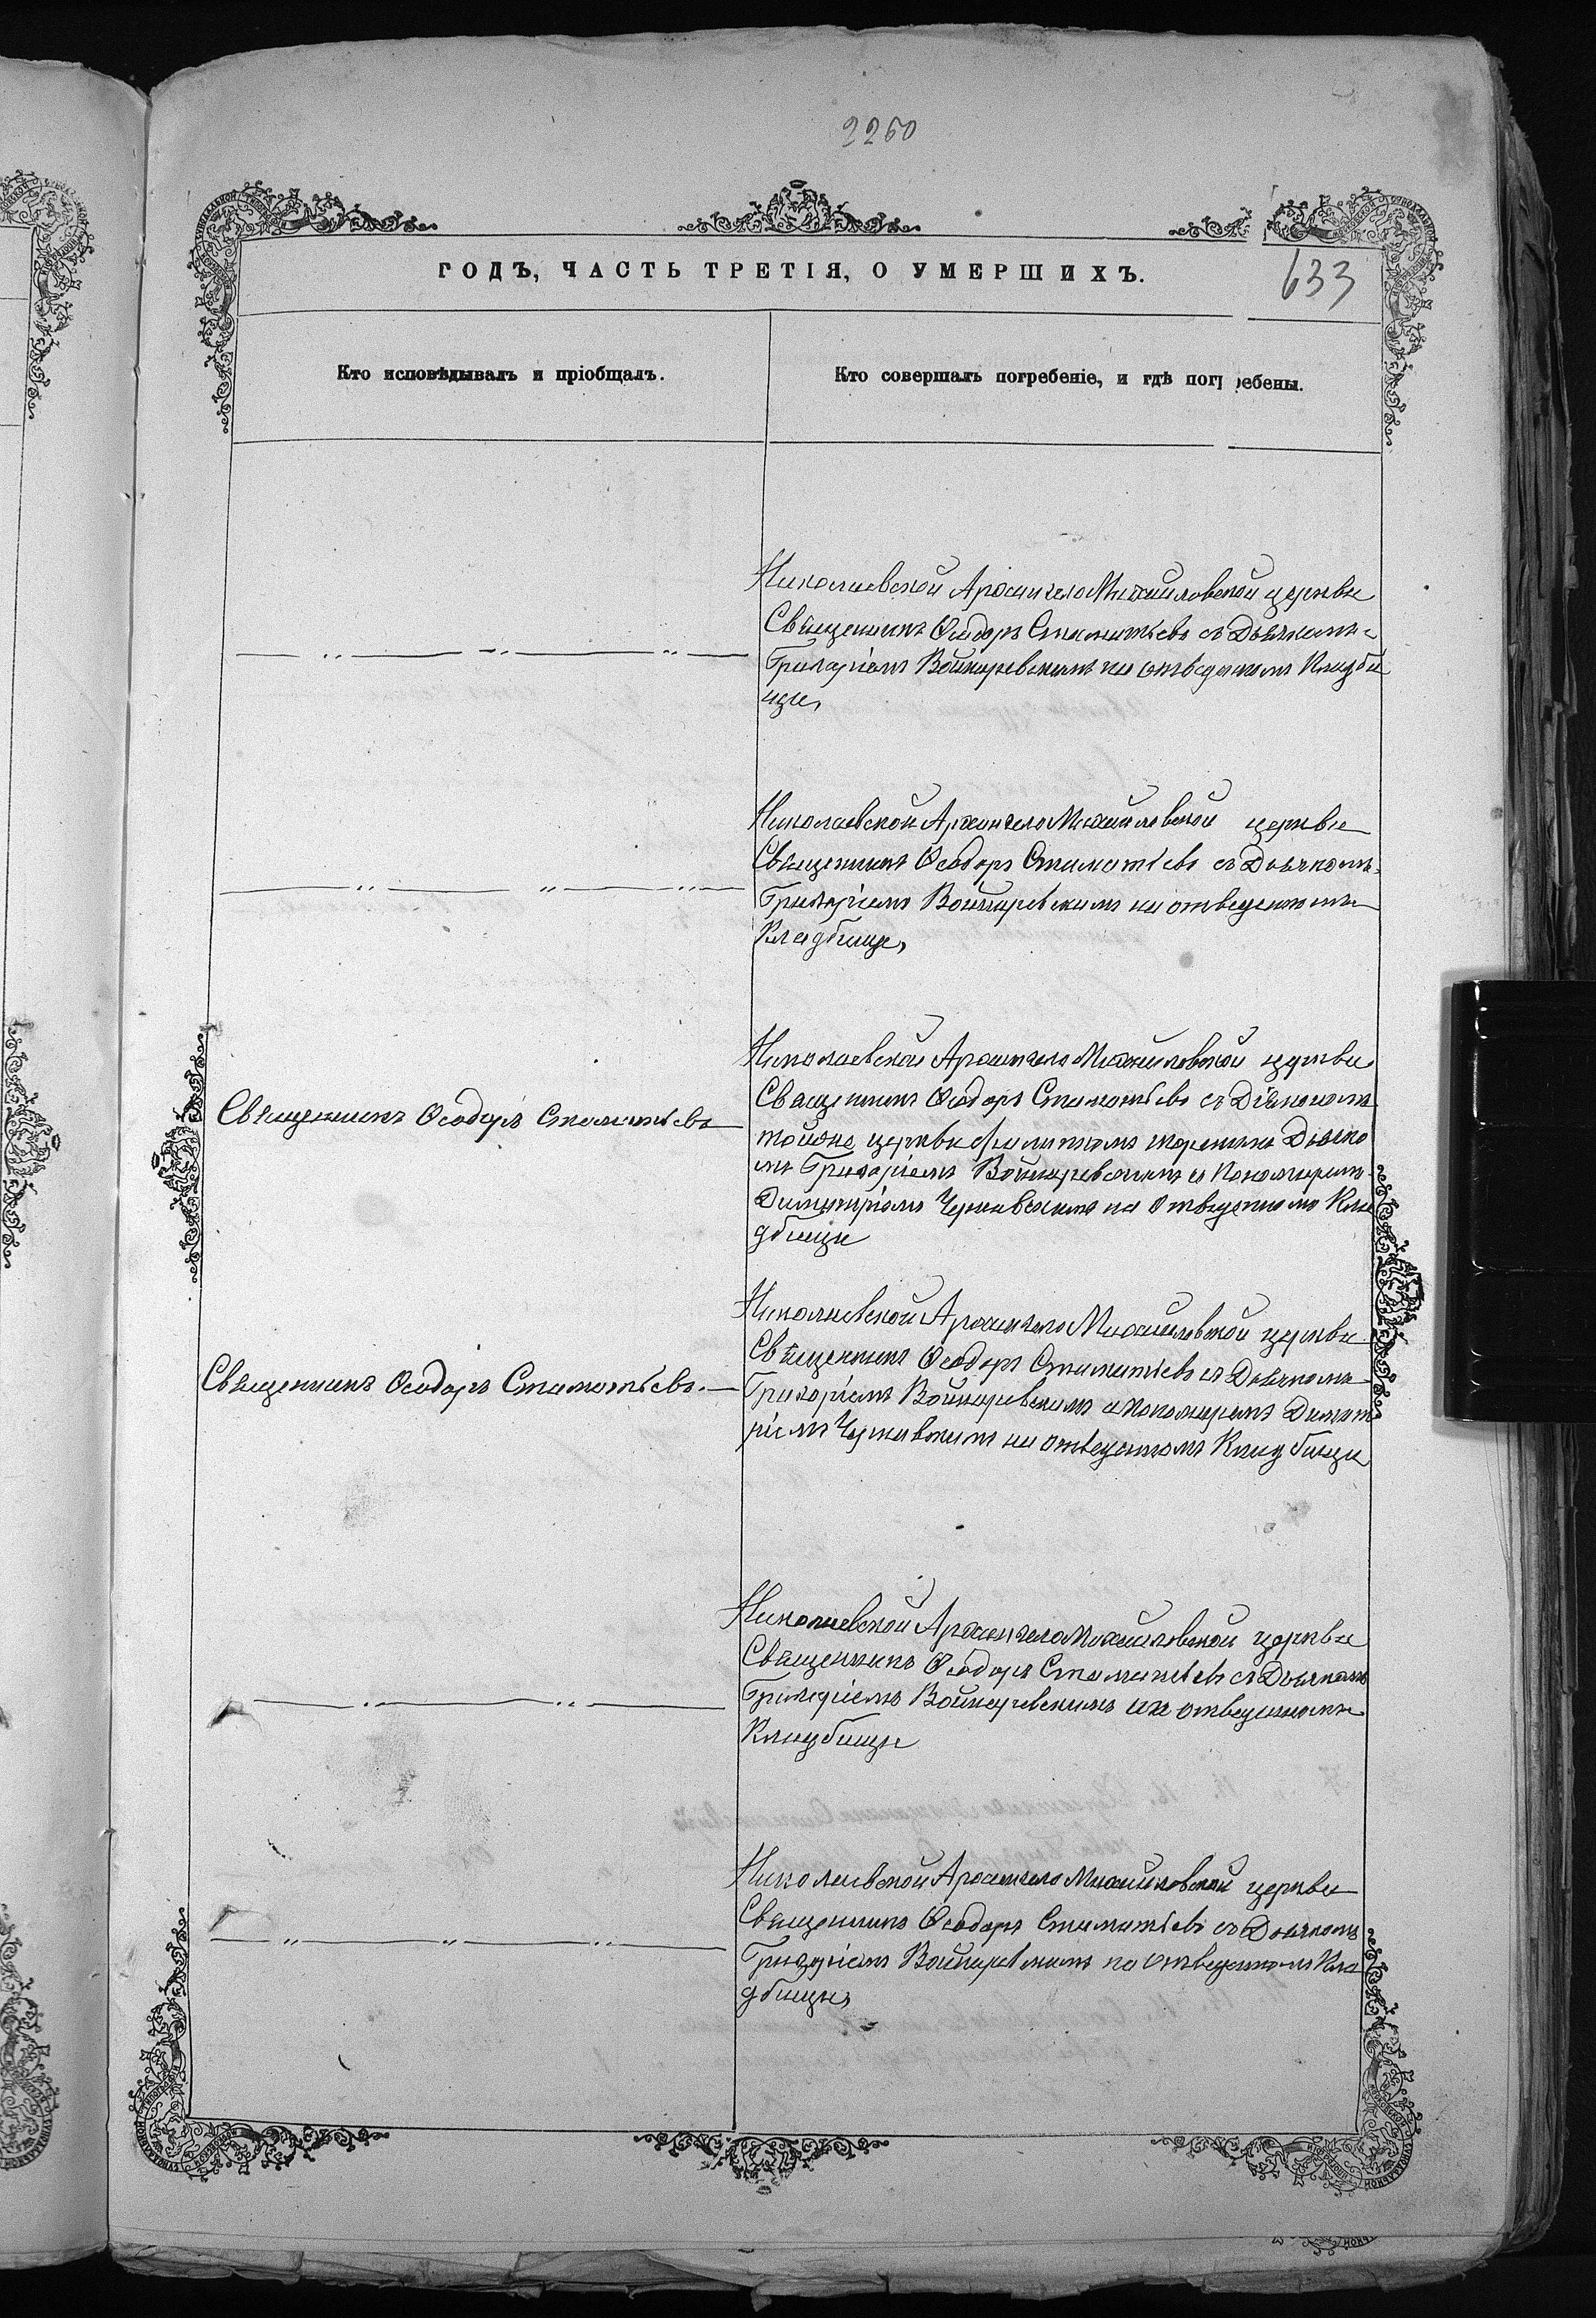 2260
ГОДЪ, ЧАСТЬ ТРЕТІЯ, О УМЕРШИХЪ.
633
Кто исповѣдывалъ и пріобщалъ.
Кто совершалъ погребеніе, и гдѣ погребены.
Николаевской АрхангелоМихайловской церкви
Священникъ Ѳеодоръ Стаматіевъ съ Дьячкомъ
Григоріемъ Войнаревскимъ на отведеномъ Кладби
щи,
Николаевской АрхангелоМихайловской церкви
Священникъ Ѳеодоръ Стаматіевъ съ Дьячкомъ
Григоріемъ Войнаревскимъ на отведеномъ
Кладбищи,
Николаевской АрхангелоМихайловской церкви
Священникъ Ѳеодоръ Стаматіевъ
Священникъ Ѳеодоръ Стаматіевъ съ Діякономъ
тойже церкви Дьячко
мъ Григоріемъ Войнаревскимъ и Пономаремъ
Димитріемъ Чернавскимъ на Отведенномъ Кла
дбищи
Николаевской АрхангелоМихайловской церкви
Священникъ Ѳеодоръ Стаматіевъ съ Дьячкомъ
Священникъ Ѳеодоръ Стаматіевъ
Григоріемъ Войнаревскимъ и пономаремъ Димит
ріемъ Чернавскимъ на отведеномъ Кладбищи
Николаевской АрхангелоМихайловской церкви
Священникъ Ѳеодоръ Стаматіевъ съ Дьячкомъ
Григоріемъ Войнаревскимъ на отведенномъ
Кладбищи
Николаевской АрхангелоМихайловской церкви
Священникъ Ѳеодоръ Стаматіевъ съ Дьячкомъ
Григоріемъ Войнаревскимъ на отведенномъ Кла
дбищи,